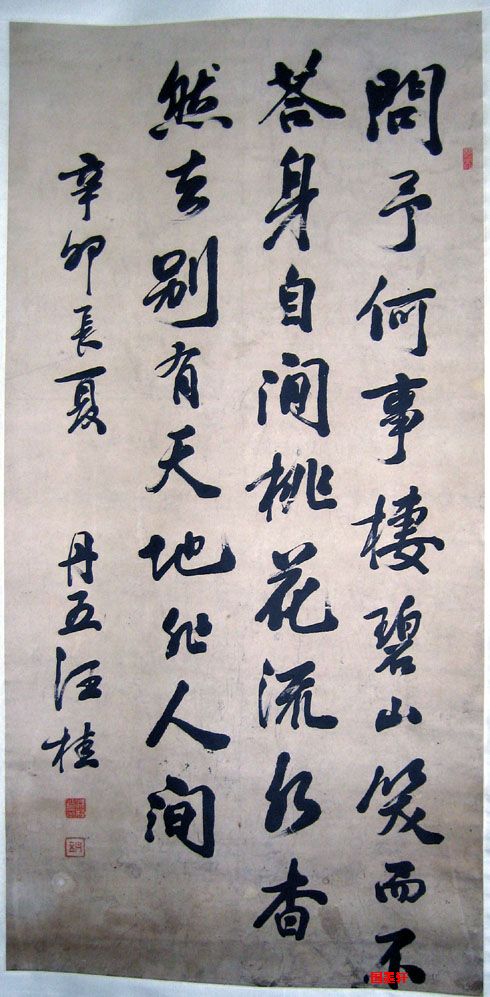 問予何事棲碧山笑而不
荅身自澗桃花流水杳
然去别有天地非人澗
辛卯長夏
丹五汪桂